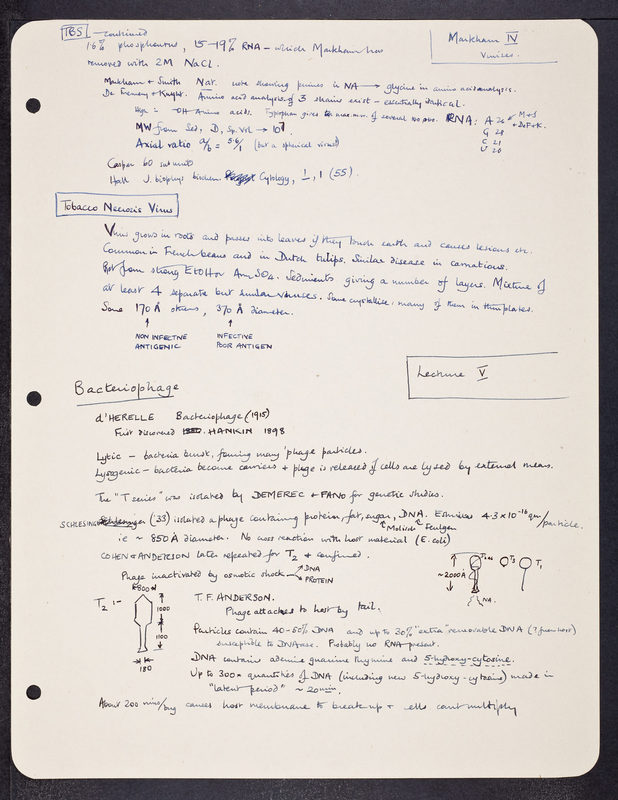 TBS - continued
Markham IV
Viruses.
1.6% phosphorus, 15-19% RNA - which Markham has
removed with 2M NaCl.
Markham & Smith Nat. note showing purines in NA → glycine in amino acid analysis.
De Fremery & Knight. Amino acid analysis of 3 strains exist - essentially identical.
OH Amino acids. Tryptophan gives
MW from Sed, D, Sp. Vol → 10⁷.
RNA: A 26 M+S
G 28 + DeF+K.
C 21
U 26
Axial ratio a/b = 5.6/1 (but a spherical virus)
Caspar 60 subunits
Hall J. biophys biochem Cytology, 1, 1 (55).
Tobacco Necrosis Virus
Virus grows in roots and passes into leaves if they touch earth and causes lesions etc.
Common in French beans and in Dutch tulips. Similar disease in carnations.
Ppt from strong EtOH or Am SO4. Sediments giving a number of layers. Mixture of
at least 4 separate but similar viruses. Some crystallise; many of them in thin plates.
Some 170 Å others, 370 Å diameter.
↑ ↑
NON INFECTIVE INFECTIVE
ANTIGENIC POOR ANTIGEN
Lecture V
Bacteriophage
d'HERELLE Bacteriophage (1915)
First discovered HANKIN 1898
Lytic - bacteria burst, forming many 'phage particles.
Lysogenic - bacteria become carriers & phage is released if cells are lysed by external means.
The "T series" was isolated by DEMEREC & FANO for genetic studies.
SCHLESINGER Schlesinger ('33) isolated a phage containing protein, fat, sugar, DNA. Estimates 4.3 x 10⁻¹⁶ gm/particle.
↑ Molisch ↑ Feulgen
ie ~ 850 Å diameter. No cross reaction with host material (E. coli)
COHEN & ANDERSON later repeated for T2 & confirmed.
~2000Å T3 T1
NA.
Phage inactivated by osmotic shock → DNA
→ PROTEIN
800
T2 :-
1000
1100
180
T. F. ANDERSON.
Phage attaches to host by tail.
Particles contain 40-50% DNA and up to 30% "extra" removable DNA (? from host)
susceptible to DNAase. Probably no RNA present.
DNA contain adenine guanine thymine and 5-hydroxy-cytosine.
Up to 300 x quantities of DNA (including new 5-hydroxy-cytosine) made in
"latent period" ~ 20 min.
About 200 virus/bug causes host membrane to break up & cells can't multiply